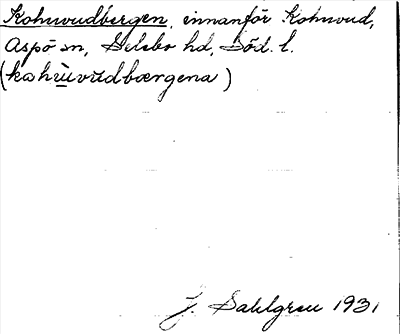 Kohuvudbergen, innanför Kohuvud,
Aspö sn, Selebo hd, Söd. l.
(kohùvudbærgena)
J. Sahlgren 1931